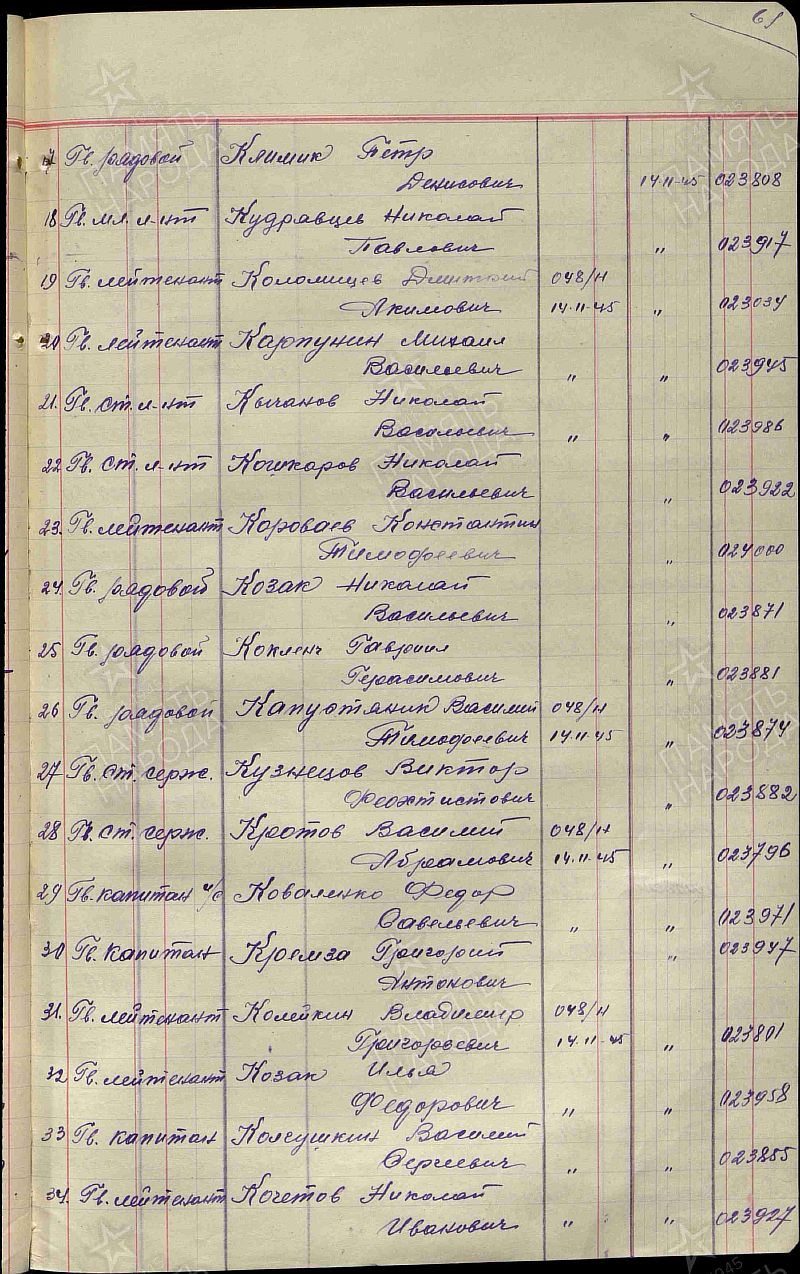 61
17 Гв. рядовой Климик Петр
Денисович 14.11.45 023808
18 Гв. мл. л-нт Кудравцев Николай
Павлович „ 023917
19 Гв. лейтенант Коломицев Дмитрий 048/н
Акимович 14.11.45 „ 023034
20 Гв. лейтенант Карпунин Михаил
Васильевич „ „ 023945
21. Гв. ст. л-нт Кычанов Николай
Васильевич „ „ 023986
22 Гв. ст. л-нт Кошкаров Николай
Васильевич „ 023922
23. Гв. лейтенант Короваев Константин
Тимофеевич „ 024000
24. Гв. рядовой Козак Николай
Васильевич „ 023871
25 Гв. рядовой Кокленч Гавриил
Герасимович „ 023881
26 Гв. рядовой Капустяник Василий 048/н
Тимофеевич 14.11.45 „ 023874
27 Гв. ст. серж. Кузнецов Виктор
Феохтистович „ 023882
28 Гв. ст. серж. Кротов Василий 048/н
Абрамович 14.11.45 „ 023796
29 Гв. капитан и/с Коваленко Федор
Савельевич „ „ 023971
30 Гв. капитан Кремза Григорий „ 023947
Антонович
31. Гв. лейтенант Колейкин Владимир 048/н
Григорьевич 14.11.45 „ 023801
32 Гв. лейтенант Козак Илья
Федорович „ „ 023958
33 Гв. капитан Колсушкин Василий
Сергеевич „ „ 023855
34. Гв. лейтенант Кочетов Николай
Иванович „ „ 023927
ПАМЯТЬ НАРОДА